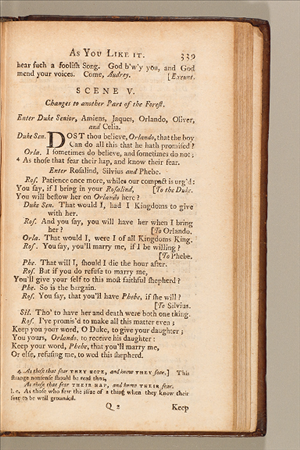 AS YOU LIKE IT. 339
hear such a foolish Song. God b'w'y you, and God
mend your voices. Come, Audrey. [Exeunt.
SCENE V.
Changes to another Part of the Forest.
Enter Duke Senior, Amiens, Jaques, Orlando, Oliver,
and Celia.
Duke Sen. DOST thou believe, Orlando, that the boy
Can do all this that he hath promised?
Orla. I sometimes do believe, and sometimes do not;
4 As those that fear their hap, and know their fear.
Enter Rosalind, Silvius and Phebe.
Ros. Patience once more, whiles our compact is urg'd:
You say, if I bring in your Rosalind, [To the Duke.
You will bestow her on Orlando here?
Duke Sen. That would I, had I Kingdoms to give
with her.
Ros. And you say, you will have her when I bring
her? [To Orlando.
Orla. That would I, were I of all Kingdoms King.
Ros. You say, you'll marry me, if I be willing?
[To Phebe.
Phe. That will I, should I die the hour after.
Ros. But if you do refuse to marry me,
You'll give your self to this most faithful shepherd?
Phe. So is the bargain.
Ros. You say, that you'll have Phebe, if she will?
[To Silvius.
Sil. Tho' to have her and death were both one thing.
Ros. I've promis'd to make all this matter even;
Keep you your word, O Duke, to give your daughter;
You yours, Orlando, to receive his daughter:
Keep your word, Phebe, that you'll marry me,
Or else, refusing me, to wed this shepherd.
4 As those that fear THEY HOPE, and know THEY fear.] This
strange nonsense should be read thus,
As those that fear THEIR HAP, and know THEIR fear.
i. e. As those who fear the issue of a thing when they know their
fear to be well grounded.
Q 2 Keep